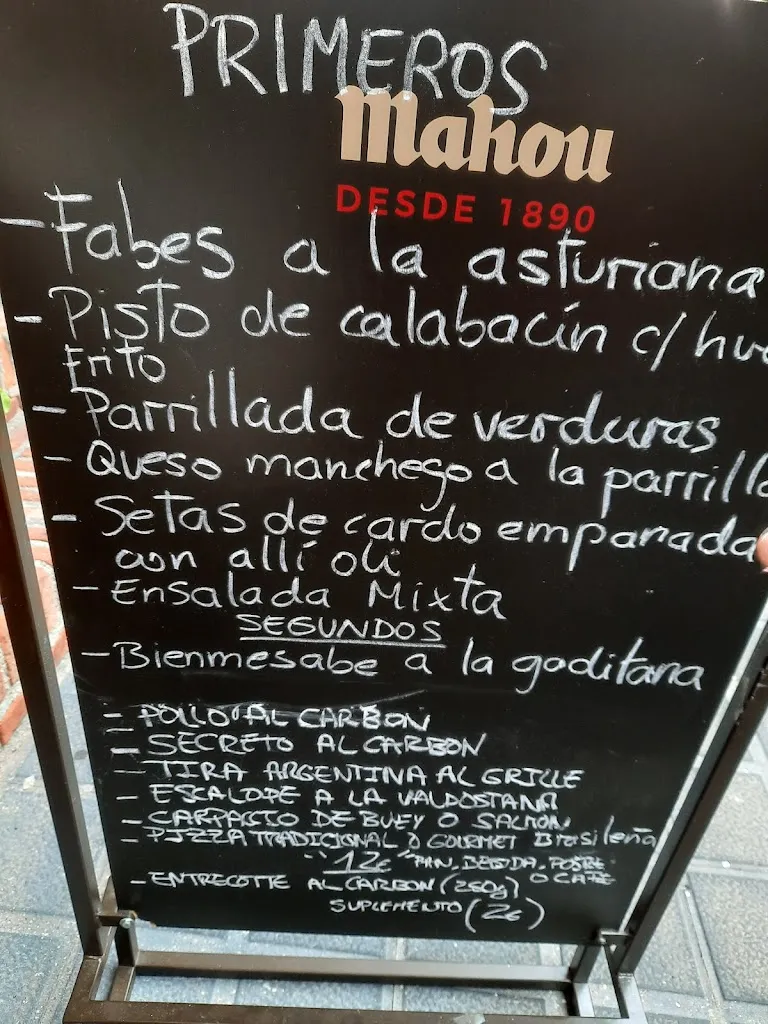 PRIMEROS
Mahou
DESDE 1890
- Fabes a la asturiana
- Pisto de calabacín c/ hue
Frito
- Parrillada de verduras
- Queso manchego a la parrilla
- Setas de cardo empanada
con allí oli
- Ensalada Mixta
SEGUNDOS
- Bienmesabe a la gaditana
- POLLO AL CARBON
- SECRETO AL CARBON
- TIRA ARGENTINA AL GRILLE
- ESCALOPE A LA VALDOSTANA
- CARPACCIO DE BUEY O SALMON
- PIZZA TRADICIONAL O GOURMET Brasileña
"12€" PAN, BEBIDA, POSTRE
O CAFE
- ENTRECOTTE AL CARBON (250g)
SUPLEMENTO (2€)